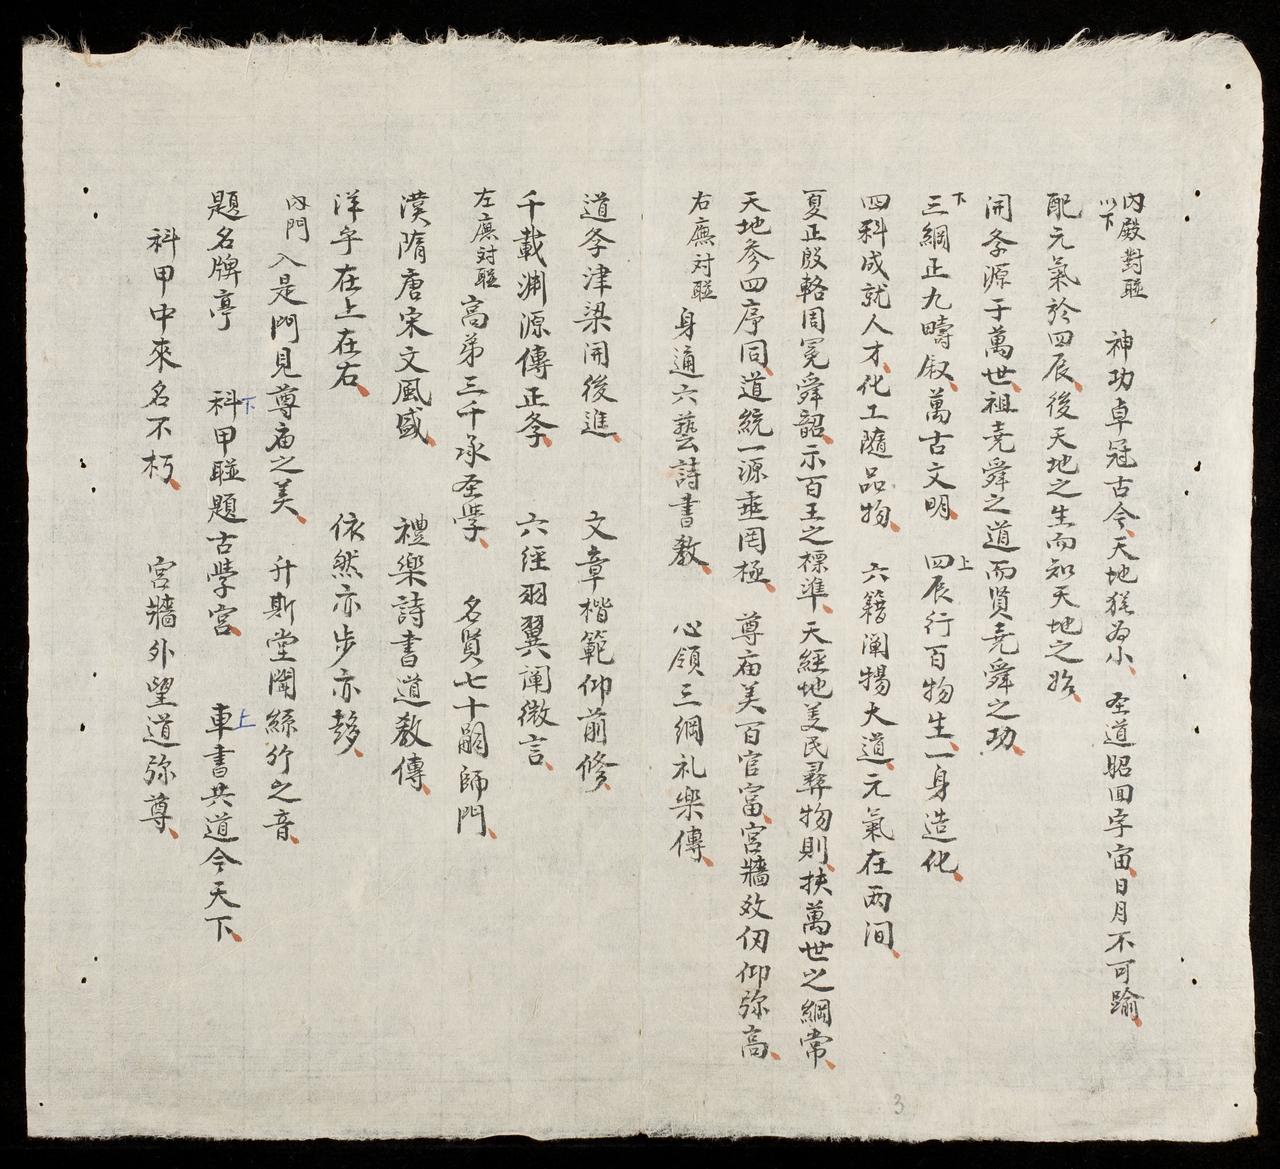 內殿對聯以下 神功卓冠古今天地猶爲小 圣道昭回宇宙日月不可踰
配元氣於四辰後天地之生而知天地之始
開孝源于萬世祖堯舜之道而賢堯舜之功
下三綱正九疇叙萬古文明 上四辰行百物生一身造化
四科成就人才化工隨品物 六籍阐揚大道元氣在两间
夏正殷輅周冕舜韶示百王之標準天經地义民彝物則扶萬世之綱常
天地參四序同道統一源垂罔極 尊庙美百官富宮牆效仞仰弥高
右廡対聯 身通六藝詩書教 心領三綱礼樂傳
道孝津梁開後進 文章楷範仰前修
千載渊源傳正孝 六經羽翼阐微言
左廡対聯 高弟三千承圣學 名賢七十嗣師門
漢隋唐宋文風盛 禮樂詩書道教傳
洋乎在上在右 依然亦步亦趍
內門 入是門見尊庙之美 升斯堂聞絲竹之音
題名牌亭 下科甲聯題古學宮 上車書共道今天下
科甲中來名不朽 宮牆外望道弥尊
3